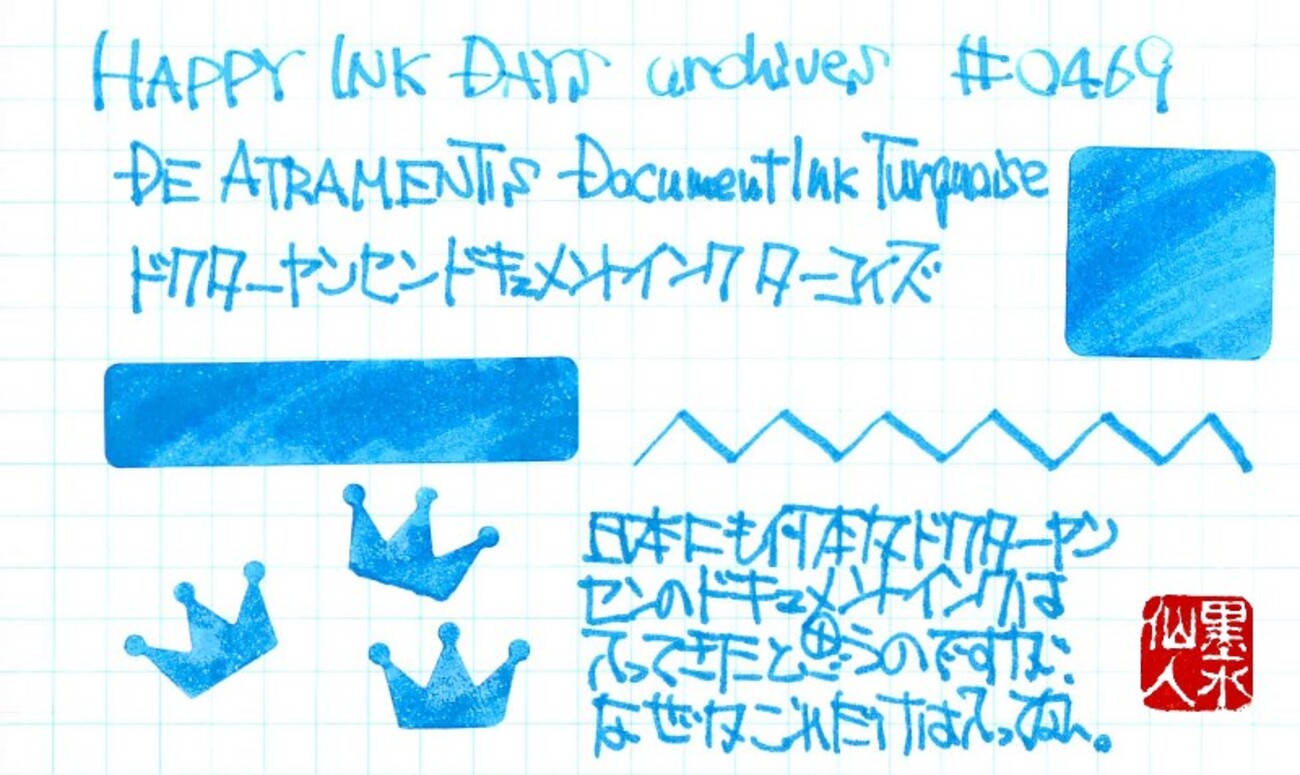 HAPPY INK DAYS archives #0469
DE ATRAMENTIS Document Ink Turquoise
ドクターヤンセンドキュメントインク ターコイズ
日本にも何本かドクターヤン
センのドキュメントインクは
入ってきたと思うのですが、
なぜかこれだけは入ってねん。
墨水
仙人